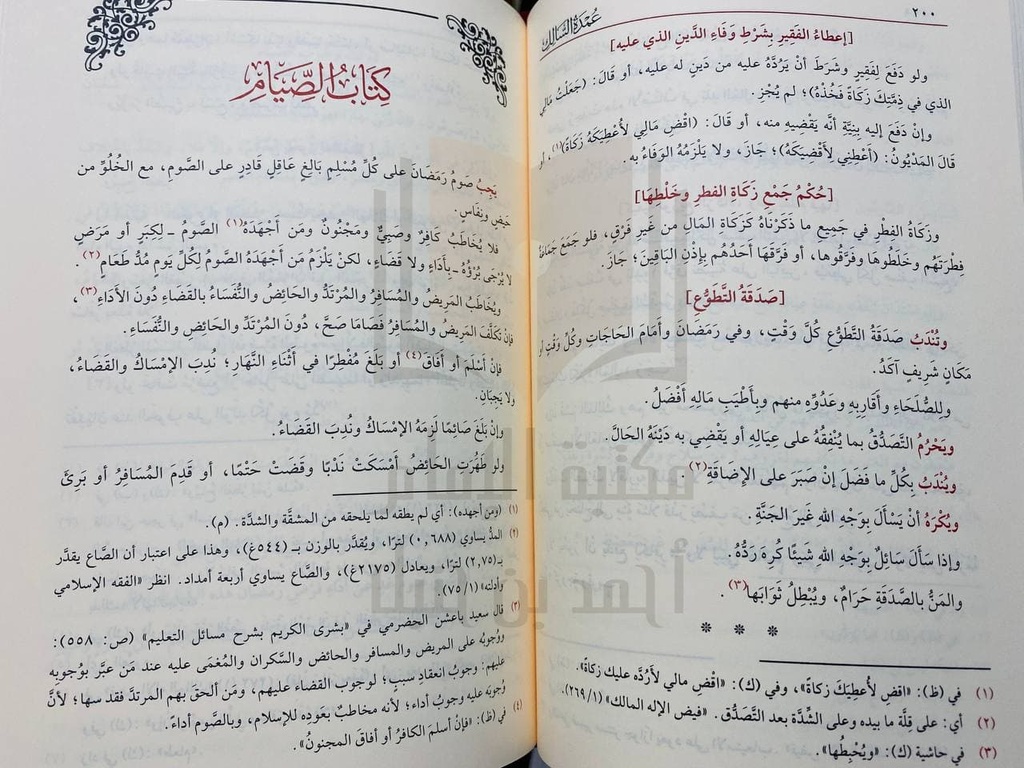 ٢٠٠
عُمْدَةُ السَّالِك
[إعطاءُ الفَقِيرِ بِشَرْطِ وَفَاءِ الدَّينِ الذي عليه]
ولو دَفَعَ لِفَقِيرٍ وشَرَطَ أنْ يَرُدَّهُ عليه من دَينٍ له عليه، أو قالَ: (جَعَلْتُ مَالِي
الذي في ذِمَّتِكَ زَكَاةً فَخُذْهُ)؛ لم يُجْزِ.
وإنْ دَفَعَ إليه بِنِيَّةِ أنَّه يَقْضِيهِ منه، أو قالَ: (اقْضِ مَالِي لأُعْطِيَكَهُ زَكَاةً)(١)، أو
قالَ المَدْيُونُ: (أَعْطِنِي لأَقْضِيَكَهُ)؛ جَازَ، ولا يَلْزَمُهُ الوَفَاءُ به.
[حُكْمُ جَمْعِ زَكَاةِ الفطرِ وخَلْطِها]
وزَكَاةُ الفِطْرِ في جَمِيعِ ما ذَكَرْنَاهُ كَزَكَاةِ المَالِ من غَيرِ فَرْقٍ، فلو جَمَعَ جَمَاعَةٌ
فِطْرَتَهُم وخَلَطُوها وفَرَّقُوها، أو فَرَّقَها أَحَدُهُم بِإِذْنِ البَاقِينَ؛ جَازَ.
[صَدَقَةُ التَّطَوُّعِ]
وتُنْدَبُ صَدَقَةُ التَّطَوُّعِ كُلَّ وَقْتٍ، وفي رَمَضَانَ وأَمَامَ الحَاجَاتِ وكُلِّ وَقْتٍ أو
مَكَانٍ شَرِيفٍ آكَدُ.
ولِلصُّلَحَاءِ وأَقَارِبِهِ وعَدُوِّهِ منهم وبِأَطْيَبِ مَالِهِ أَفْضَلُ.
ويَحْرُمُ التَّصَدُّقُ بما يُنْفِقُهُ على عِيَالِهِ أو يَقْضِي به دَيْنَهُ الحَالَّ.
ويُنْدَبُ بِكُلِّ ما فَضَلَ إنْ صَبَرَ على الإضَاقَةِ(٢).
ويُكْرَهُ أنْ يَسْأَلَ بِوَجْهِ اللهِ غَيرَ الجَنَّةِ.
وإذا سَأَلَ سَائِلٌ بِوَجْهِ اللهِ شَيئًا كُرِهَ رَدُّهُ.
والمَنُّ بالصَّدَقَةِ حَرَامٌ، ويُبْطِلُ ثَوَابَها(٣).
* * *
(١) في (ظ): «اقضِ لأُعطِيَكَ زكاةً»، وفي (ك): «اقضِ مالي لأرُدَّه عليك زكاةً».
(٢) أي: على قِلَّةِ ما بيده وعلى الشِّدَّةِ بعد التَّصَدُّقِ. «فيض الإله المالك» (٢٦٩/١).
(٣) في حاشية (ك): «ويُحْبِطُها».
كِتَابُ الصِّيَامِ
يَجِبُ صَومُ رَمَضَانَ على كُلِّ مُسْلِمٍ بَالِغٍ عَاقِلٍ قَادِرٍ على الصَّومِ، مع الخُلُوِّ من
حَيضٍ ونِفَاسٍ.
فلا يُخَاطَبُ كَافِرٌ وصَبِيٌّ ومَجْنُونٌ ومَن أَجْهَدَهُ(١) الصَّومُ ـ لِكِبَرٍ أو مَرَضٍ
لا يُرْجَى بُرْؤُهُ ـ بِأَدَاءٍ ولا قَضَاءٍ، لكنْ يَلْزَمُ مَن أَجْهَدَهُ الصَّومُ لِكُلِّ يَومٍ مُدُّ طَعَامٍ(٢).
ويُخَاطَبُ المَرِيضُ والمُسَافِرُ والمُرْتَدُّ والحَائِضُ والنُّفَسَاءُ بالقَضَاءِ دُونَ الأَدَاءِ(٣)،
فإنْ تَكَلَّفَ المَرِيضُ والمُسَافِرُ فَصَامَا صَحَّ، دُونَ المُرْتَدِّ والحَائِضِ والنُّفَسَاءِ.
فإنْ أَسْلَمَ أو أَفَاقَ(٤) أو بَلَغَ مُفْطِرًا في أَثْنَاءِ النَّهَارِ؛ نُدِبَ الإمْسَاكُ والقَضَاءُ،
ولا يَجِبَانِ.
وإنْ بَلَغَ صَائِمًا لَزِمَهُ الإمْسَاكُ ونُدِبَ القَضَاءُ.
ولو طَهُرَتِ الحَائِضُ أَمْسَكَتْ نَدْبًا وقَضَتْ حَتْمًا، أو قَدِمَ المُسَافِرُ أو بَرِئَ
(١) (ومن أجهده): أي لم يطقه لما يلحقه من المشقَّة والشدَّة. (م).
(٢) المدُّ يساوي (٠,٦٨٨) لترًا، ويُقدَّر بالوزن بـ (٥٤٤غ)، وهذا على اعتبار أن الصَّاع يقدَّر
بـ (٢,٧٥) لترًا، ويعادل (٢١٧٥غ)، والصَّاع يساوي أربعة أمداد. انظر «الفقه الإسلامي
وأدلته» (٧٥/١).
(٣) قال سعيد باعشن الحضرمي في «بشرى الكريم بشرح مسائل التعليم» (ص: ٥٥٨):
ووجُوبُه على المريض والمسافر والحائض والسَّكران والمُغمَى عليه عند مَن عبَّر بوُجوبِه
عليهم: وجوبُ انعقادِ سببٍ؛ لوجوب القضاء عليهم، ومَن ألحَقَ بهم المرتدَّ فقد سها؛ لأنَّ
وُجوبَه عليه وجوبُ أداء؛ لأنه مخاطَبٌ بعَودِه للإسلام، وبالصَّوم أداءً.
(٤) في (ظ): «فإنْ أسلَمَ الكافرُ أو أفاقَ المجنونُ».
مكتبة
أحمد بن